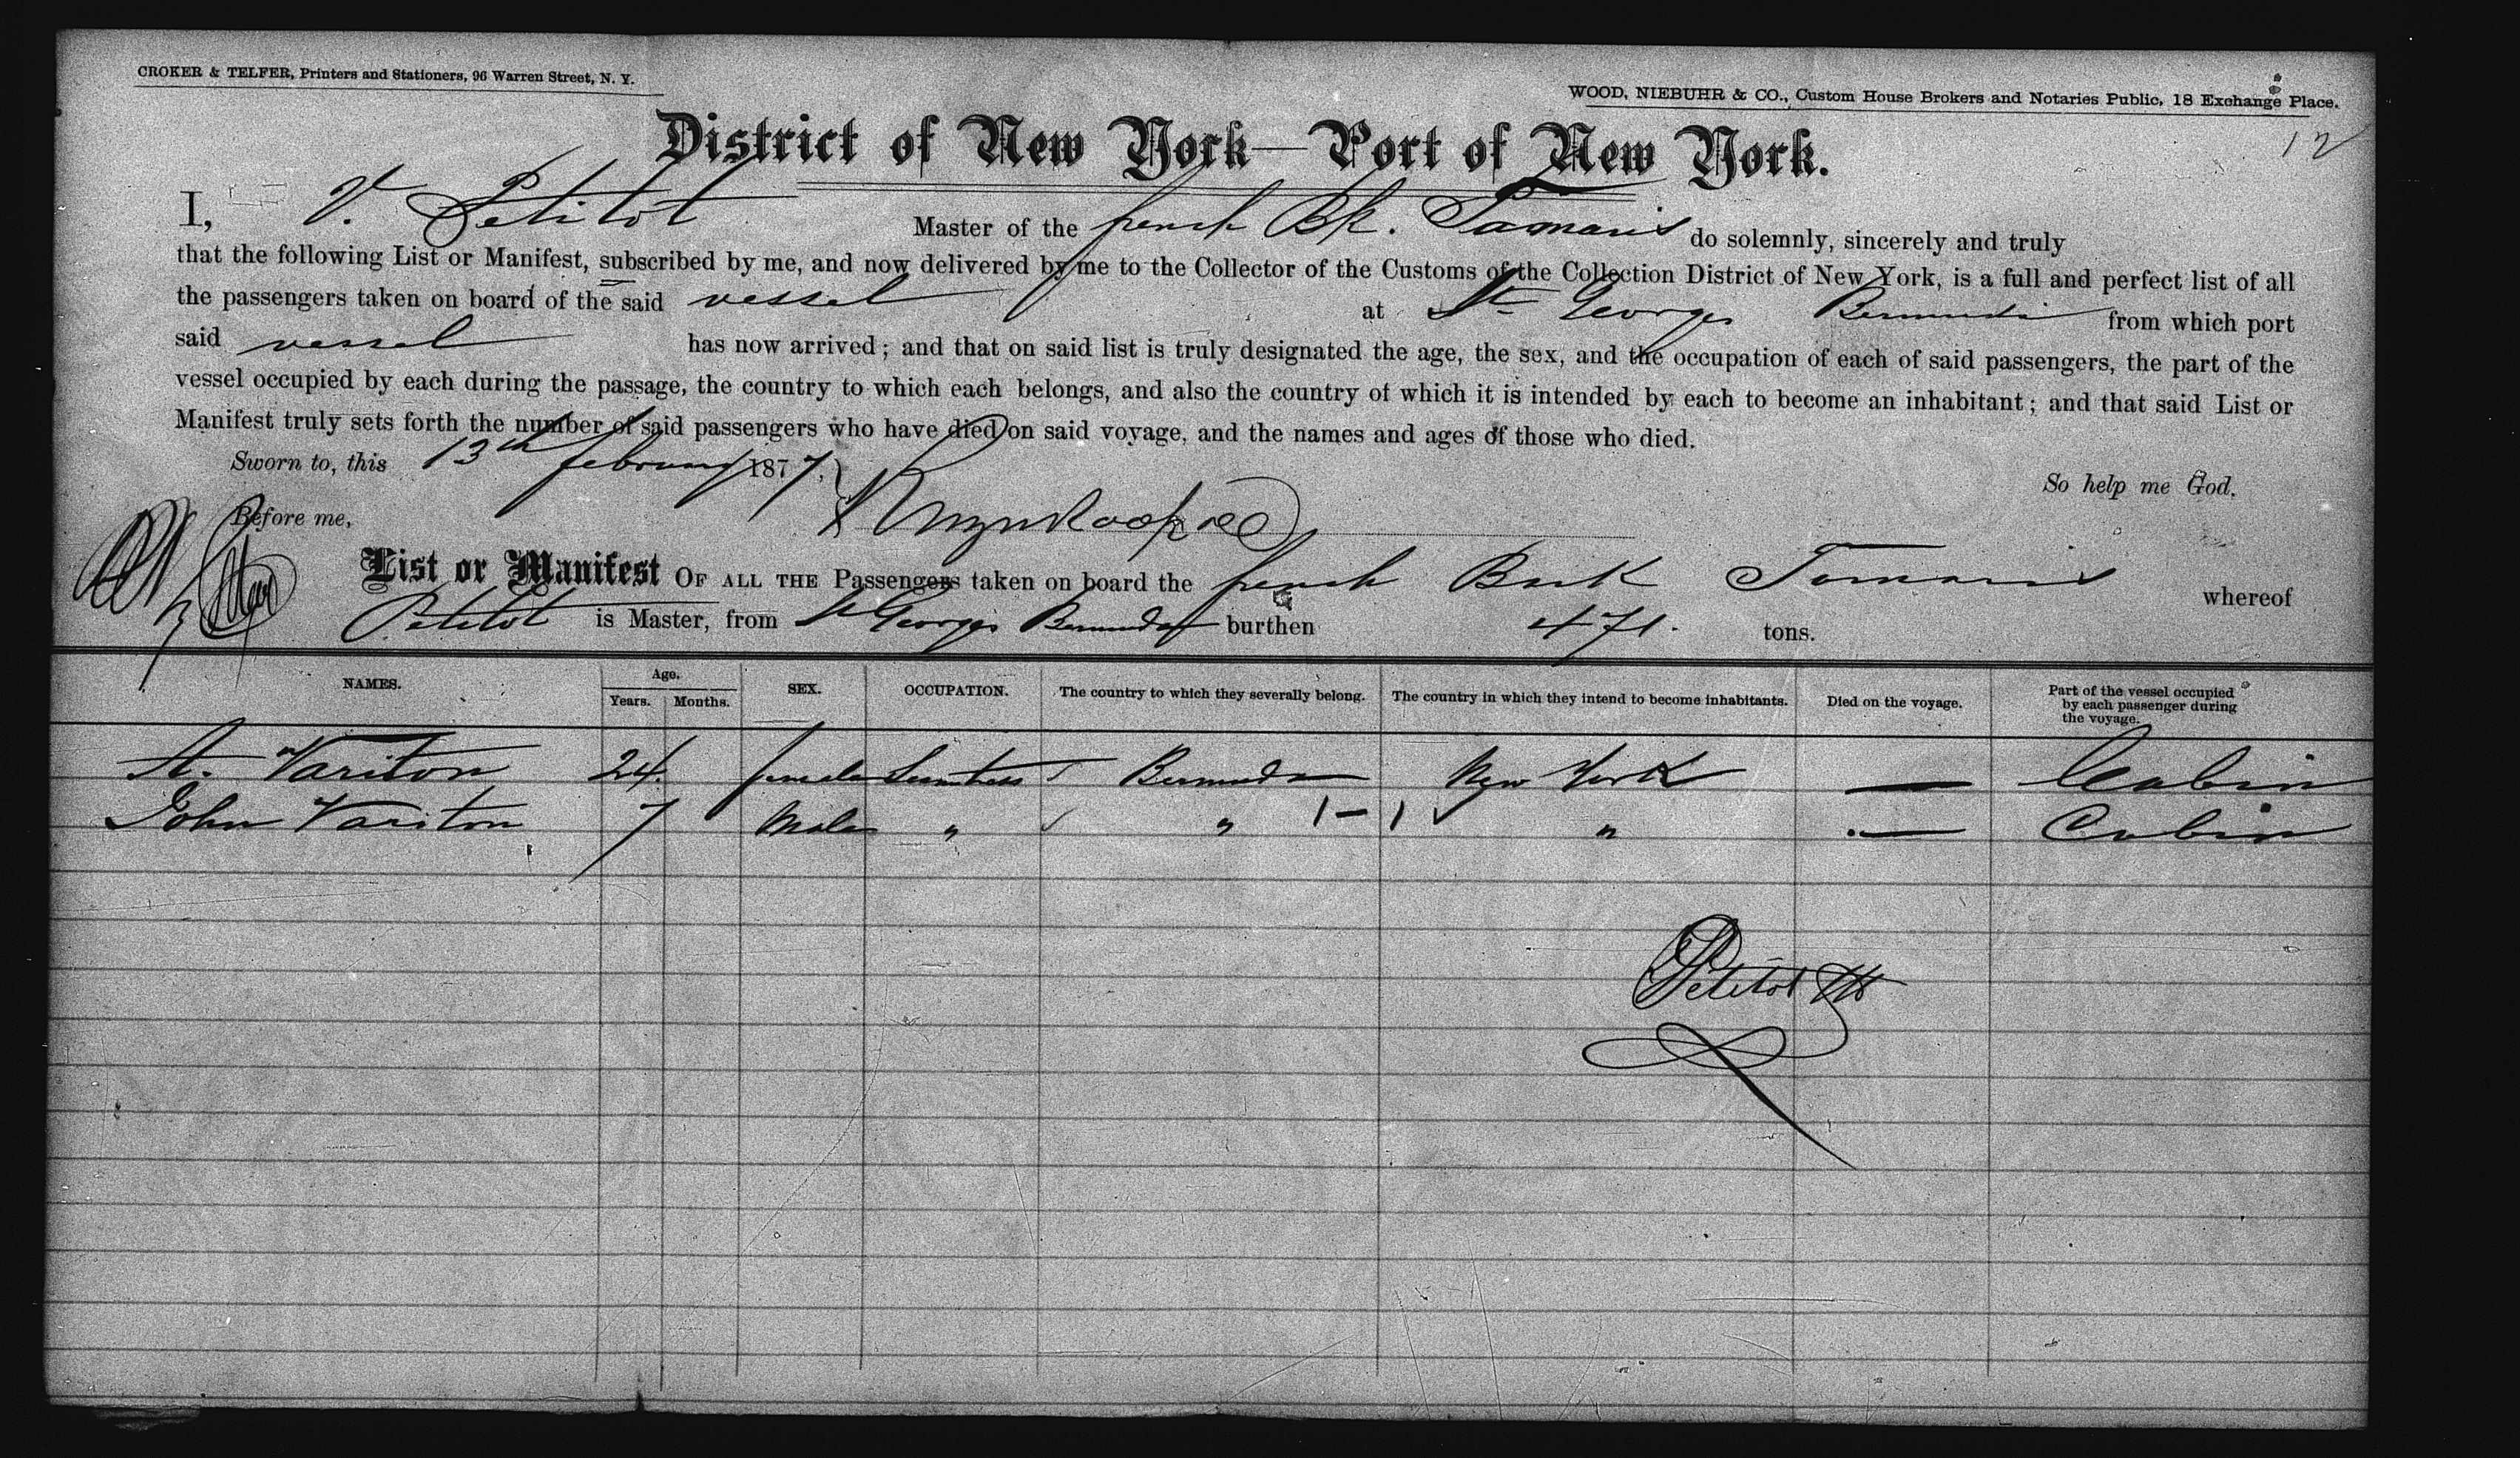 CROKER & TELFER, Printers and Stationers, 96 Warren Street, N. Y.
WOOD, NIEBUHR & CO., Custom House Brokers and Notaries Public, 18 Exchange Place.
12
District of New York—Port of New York.
I, V. Petitot Master of the french Bk. Tamaris do solemnly, sincerely and truly
that the following List or Manifest, subscribed by me, and now delivered by me to the Collector of the Customs of the Collection District of New York, is a full and perfect list of all
the passengers taken on board of the said vessel at St Georges Bermuda from which port
said vessel has now arrived; and that on said list is truly designated the age, the sex, and the occupation of each of said passengers, the part of the
vessel occupied by each during the passage, the country to which each belongs, and also the country of which it is intended by each to become an inhabitant; and that said List or
Manifest truly sets forth the number of said passengers who have died on said voyage, and the names and ages of those who died.
Sworn to, this 13th february 1877, So help me God.
Before me,
List or Manifest OF ALL THE Passengers taken on board the french Bark Tamaris whereof
Petitot is Master, from St Georges Bermuda burthen 471. tons.
NAMES. Age. Years. Months. SEX. OCCUPATION. The country to which they severally belong. The country in which they intend to become inhabitants. Died on the voyage. Part of the vessel occupied by each passenger during the voyage.
A. Variton 24. female Bermuda New York — Cabin
John Variton 7 Male " " 1-1 " — Cabin
Petitot